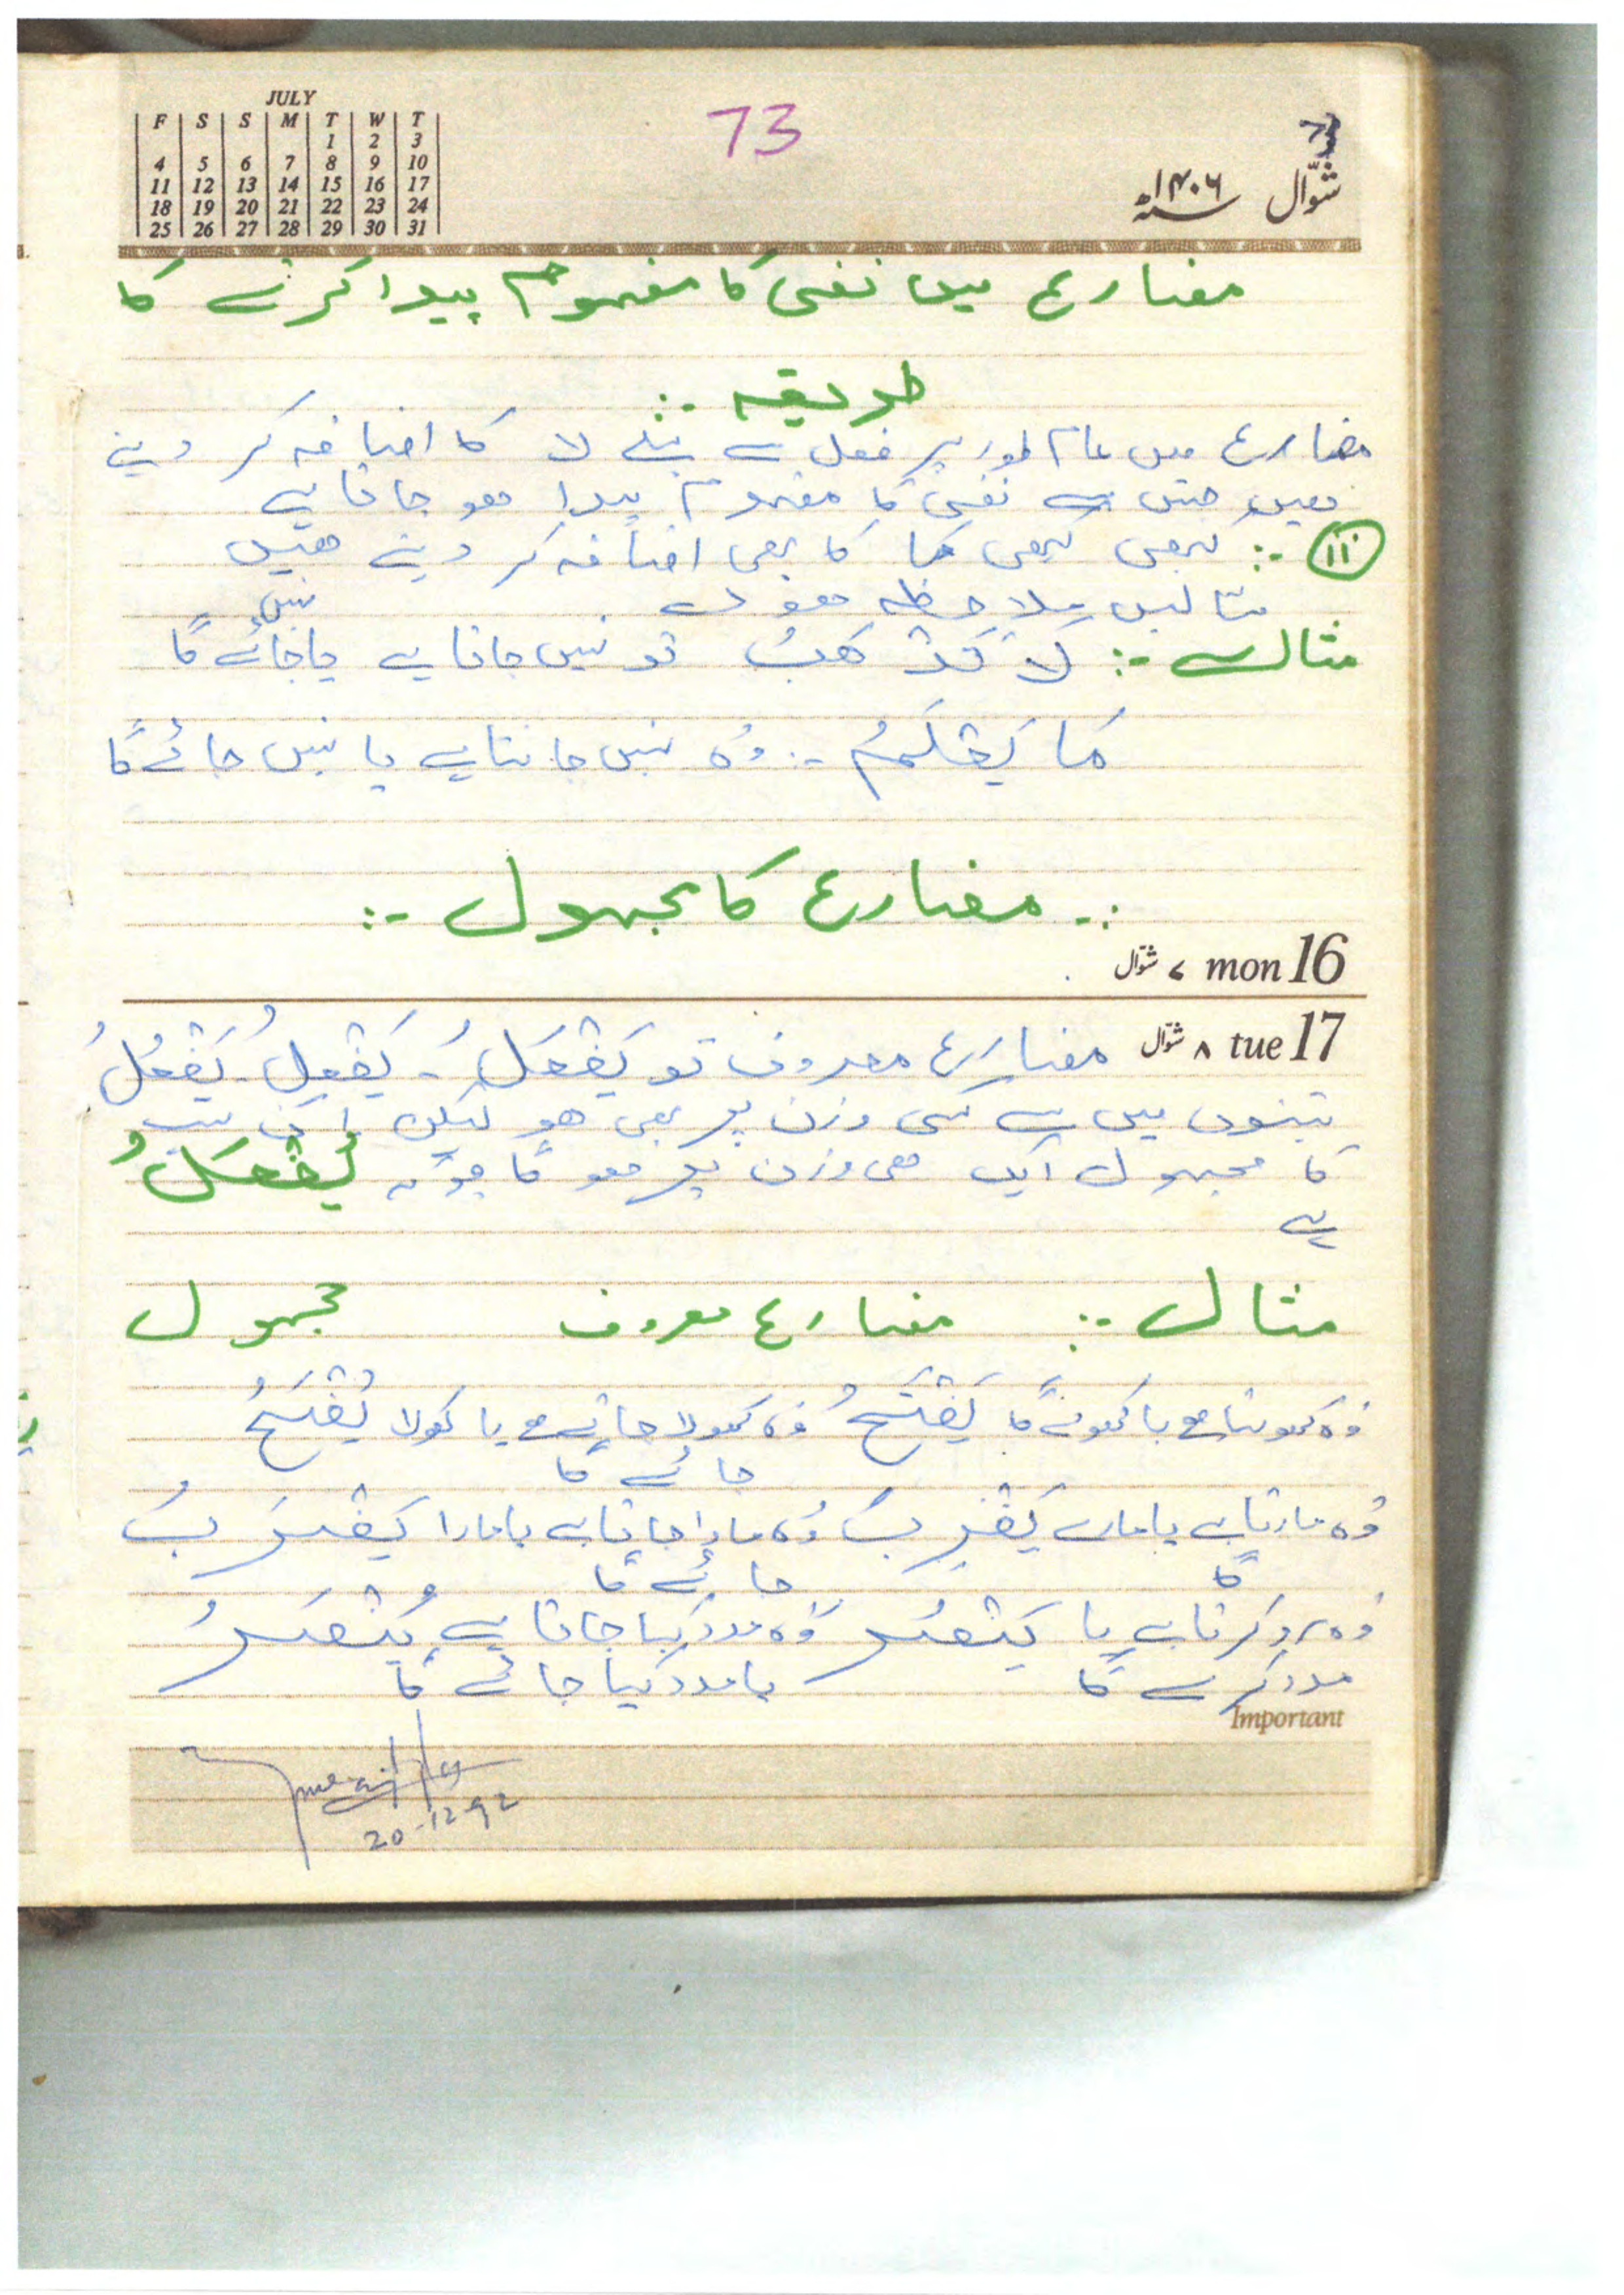 JULY
F S S M T W T
1 2 3
4 5 6 7 8 9 10
11 12 13 14 15 16 17
18 19 20 21 22 23 24
25 26 27 28 29 30 31
73
شوّال ۱۴۰۶
مضارع میں نفی کا مفہوم پیدا کرنے کا
طریقہ :-
مضارع میں عام طور پر فعل سے پہلے لا کا اضافہ کر دیتے
ہیں جس سے نفی کا مفہوم پیدا ہو جاتا ہے
(ii) :- کبھی کبھی مَا کا بھی اضافہ کر دیتے ہیں
مثالیں ملاحظہ ہوں
نہیں
مثال :- لَا تَذْهَبُ تو نہیں جاتا ہے یا جائے گا
مَا یَعْلَمُ :- وُہ نہیں جانتا ہے یا نہیں جانے گا
:- مضارع کا مجہول :-
۷ شوّال mon 16
۸ شوّال tue 17
مضارع معروف تو یَفْعَلُ - یَفْعِلُ - یَفْعُلُ
تینوں میں سے کسی وزن پر بھی ہو لیکن ان سب
کا مجہول ایک ہی وزن پر ہو گا جو کہ یُفْعَلُ
ہے
مثال :- مضارع معروف مجہول
وُہ کھولتا ہے یا کھولے گا یَفْتَحُ وُہ کھولا جاتا ہے یا کھولا یُفْتَحُ
جائے گا
وُہ مارتا ہے یا مارے یَضْرِبُ وُہ مارا جاتا ہے یا مارا یُضْرَبُ
گا جائے گا
وُہ مدد کرتا ہے یا یَنْصُرُ وُہ مدد کیا جاتا ہے یُنْصَرُ
مدد کرے گا یا مدد کیا جائے گا
Important
20-12-92